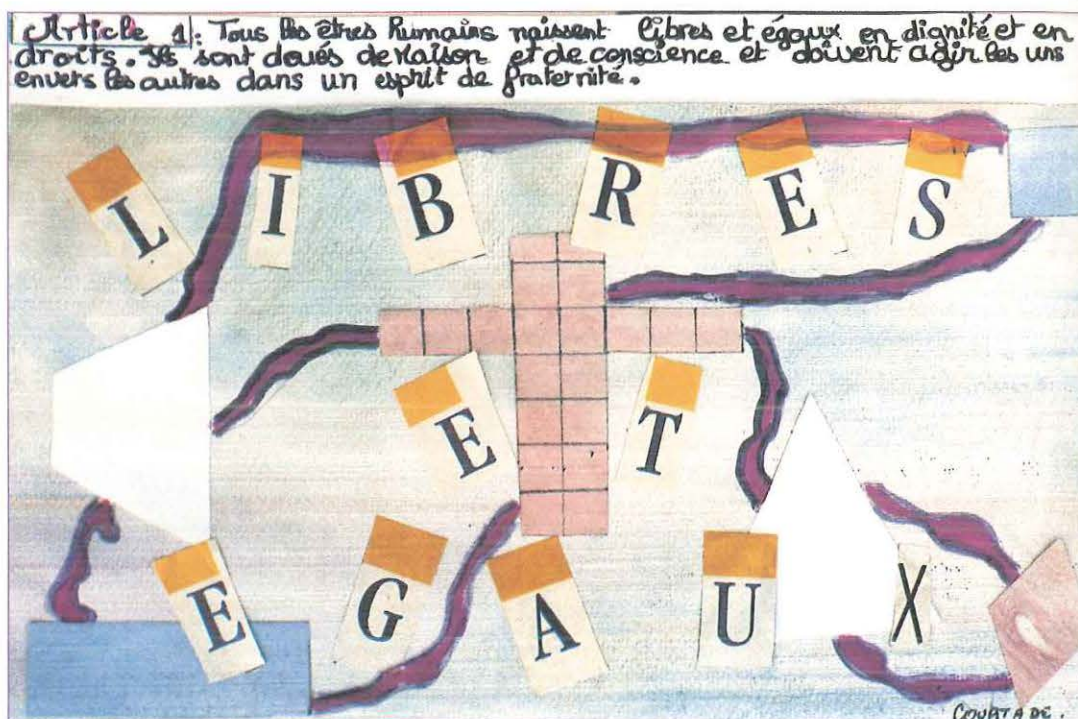 Article 1: Tous les êtres humains naissent libres et égaux en dignité et en
droits. Ils sont doués de raison et de conscience et doivent agir les uns
envers les autres dans un esprit de fraternité.
LIBRES
ET
EGAUX
COURTADE.